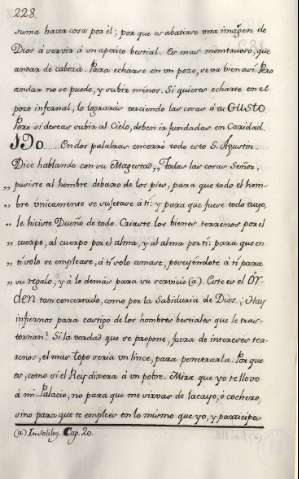 228.
suma hacer cosa por él; por que es abatirse una imagen de
Dios á servir á un apetito bestial. Es mas monstruoso, que
andar de cabeza. Para echarse en un pozo, se va bien así. Pero
andar no se puede, y subir menos. Si quieres echarte en el
pozo infernal, lo lograrás torciendo las cosas á tu GUSTO
Pero si deseas subir al Cielo, deben ir fundadas en Caridad.
130. En dos palabras encerró todo esto S. Agustin.
Dice hablando con su Magestad „Todas las cosas Señor,
„ pusiste al hombre debaxo de los pies, para que todo el hom-
„ bre únicamente se sujetase á ti: y para que fuese todo tuyo,
„ le hiciste Dueño de todo. Criaste los bienes terrenos por el
„ cuerpo, al cuerpo por el alma, y al alma por ti: para que en
„ ti solo se emplease, á ti solo amase, poseyéndote á ti para
„ su regalo, y á lo demás para su servicio (a). Este es el ÓR-
DEN tan concertado, como por la Sabiduria de Dios. ¿Hay
infiernos para castigo de los hombres bestiales que le tras-
tornan? Si la verdad que se propone, fuera de intereses ter-
renos, el mas topo sería un lince, para penetrarla. Por que
es, como si el Rey dixera á un pobre. Mira que yo te llevo
á mi Palacio, no para que me sirvas de lacayo, ó cochero,
sino para que te emplees en lo mismo que yo, y participes
(a) In soliloq. Cap. 20.